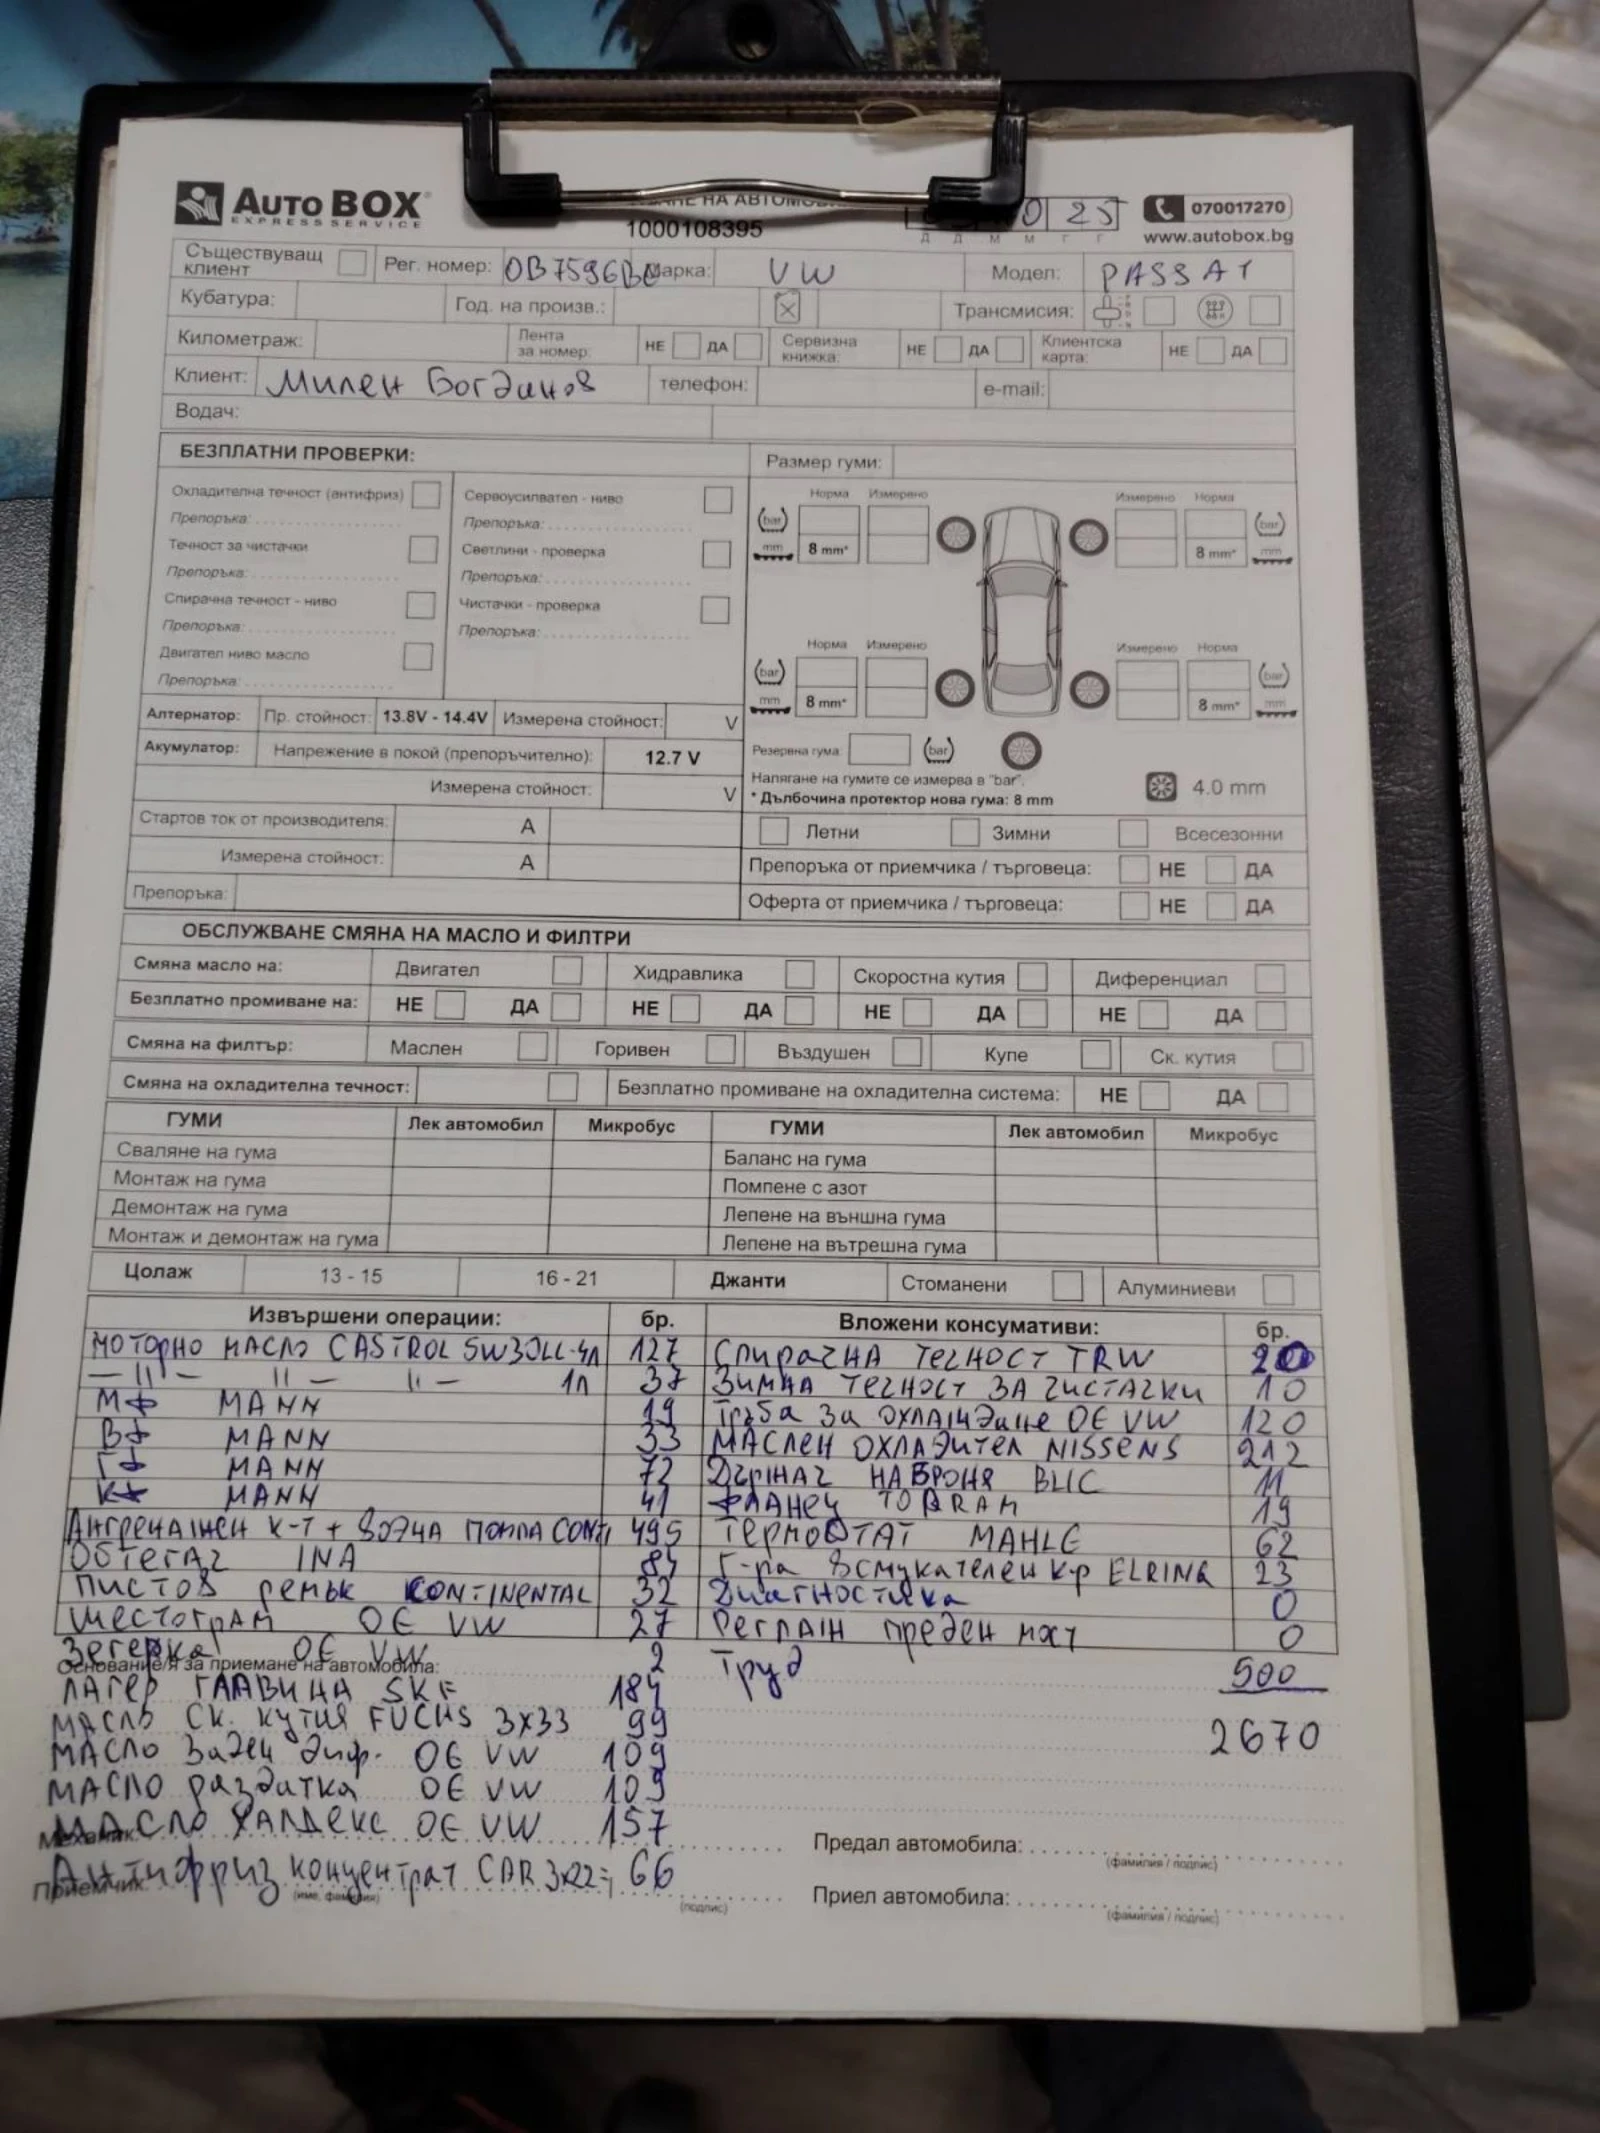 Auto BOX
EXPRESS SERVICE
НЕ НА АВТОМОБ
1000108395
0 25
Д Д М М Г Г
070017270
www.autobox.bg
Съществуващ клиент Рег. номер: OB7596B Марка: VW Модел: PASSAT
Кубатура: Год. на произв.: Трансмисия:
Километраж: Лента за номер: НЕ ДА Сервизна книжка: НЕ ДА Клиентска карта: НЕ ДА
Клиент: Милен Богданов телефон: e-mail:
Водач:
БЕЗПЛАТНИ ПРОВЕРКИ:
Охладителна течност (антифриз) Сервоусилвател - ниво
Препоръка: Препоръка:
Течност за чистачки Светлини - проверка
Препоръка: Препоръка:
Спирачна течност - ниво Чистачки - проверка
Препоръка: Препоръка:
Двигател ниво масло
Препоръка:
Алтернатор: Пр. стойност: 13.8V - 14.4V Измерена стойност: V
Акумулатор: Напрежение в покой (препоръчително): 12.7 V
Измерена стойност: V
Стартов ток от производителя: A
Измерена стойност: A
Препоръка:
Размер гуми:
Норма Измерено Измерено Норма
(bar) (bar)
mm 8 mm* 8 mm* mm
Норма Измерено Измерено Норма
(bar) (bar)
mm 8 mm* 8 mm* mm
Резервна гума: (bar)
Налягане на гумите се измерва в "bar".
* Дълбочина протектор нова гума: 8 mm 4.0 mm
Летни Зимни Всесезонни
Препоръка от приемчика / търговеца: НЕ ДА
Оферта от приемчика / търговеца: НЕ ДА
ОБСЛУЖВАНЕ СМЯНА НА МАСЛО И ФИЛТРИ
Смяна масло на: Двигател Хидравлика Скоростна кутия Диференциал
Безплатно промиване на: НЕ ДА НЕ ДА НЕ ДА НЕ ДА
Смяна на филтър: Маслен Горивен Въздушен Купе Ск. кутия
Смяна на охладителна течност: Безплатно промиване на охладителна система: НЕ ДА
ГУМИ Лек автомобил Микробус ГУМИ Лек автомобил Микробус
Сваляне на гума Баланс на гума
Монтаж на гума Помпене с азот
Демонтаж на гума Лепене на външна гума
Монтаж и демонтаж на гума Лепене на вътрешна гума
Цолаж 13 - 15 16 - 21 Джанти Стоманени Алуминиеви
Извършени операции: бр.
МОТОРНО МАСЛО CASTROL 5W30LL-4Л 127
— 11 — 11 — 11 — 1Л 37
МФ MANN 19
ВФ MANN 33
ГФ MANN 72
КФ MANN 41
Ангренажен к-т + водна помпа CONTI 495
Обтегач INA 84
Пистов ремък CONTINENTAL 32
Шестограм OE VW 27
Зегерка OE VW 2
Основание/я за приемане на автомобила:
ЛАГЕР ГЛАВИНА SKF 184
МАСЛО СК. кутия FUCHS 3x33 99
МАСЛО Заден диф. OE VW 109
МАСЛО раздатка OE VW 109
МАСЛО ХАЛДЕКС OE VW 157
Механик:
Антифриз концентрат CAR 3x22= 66
Приемчик:
(име, фамилия) (подпис)
Вложени консумативи: бр.
Спирачна течност TRW 20
Зимна течност за чистачки 10
Тръба за охлаждане OE VW 120
МАСЛЕН охладител NISSENS 212
Държач на броня BLIC 11
Фланец TOPRAN 19
Термостат MAHLE 62
Г-ра всмукателен к-р ELRING 23
Диагностика 0
Реглаж преден мост 0
Труд 500
2670
Предал автомобила:
(фамилия / подпис)
Приел автомобила:
(фамилия / подпис)